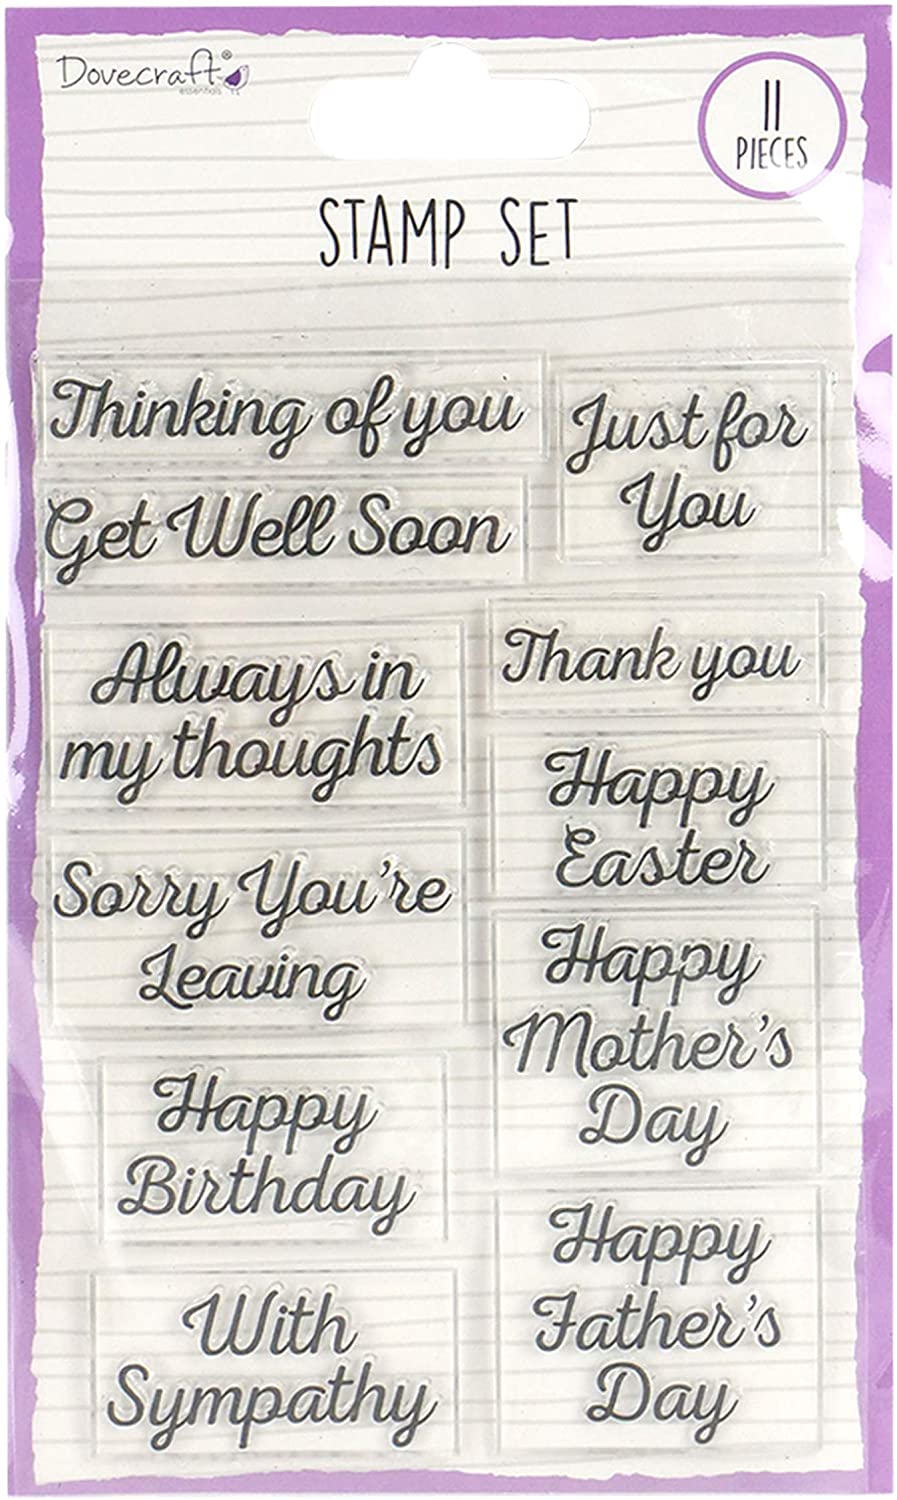 Dovecraft®
essentials
11
PIECES
STAMP SET
Thinking of you
Just for
You
Get Well Soon
Always in
my thoughts
Thank you
Happy
Easter
Sorry You're
Leaving
Happy
Mother's
Day
Happy
Birthday
Happy
Father's
Day
With
Sympathy